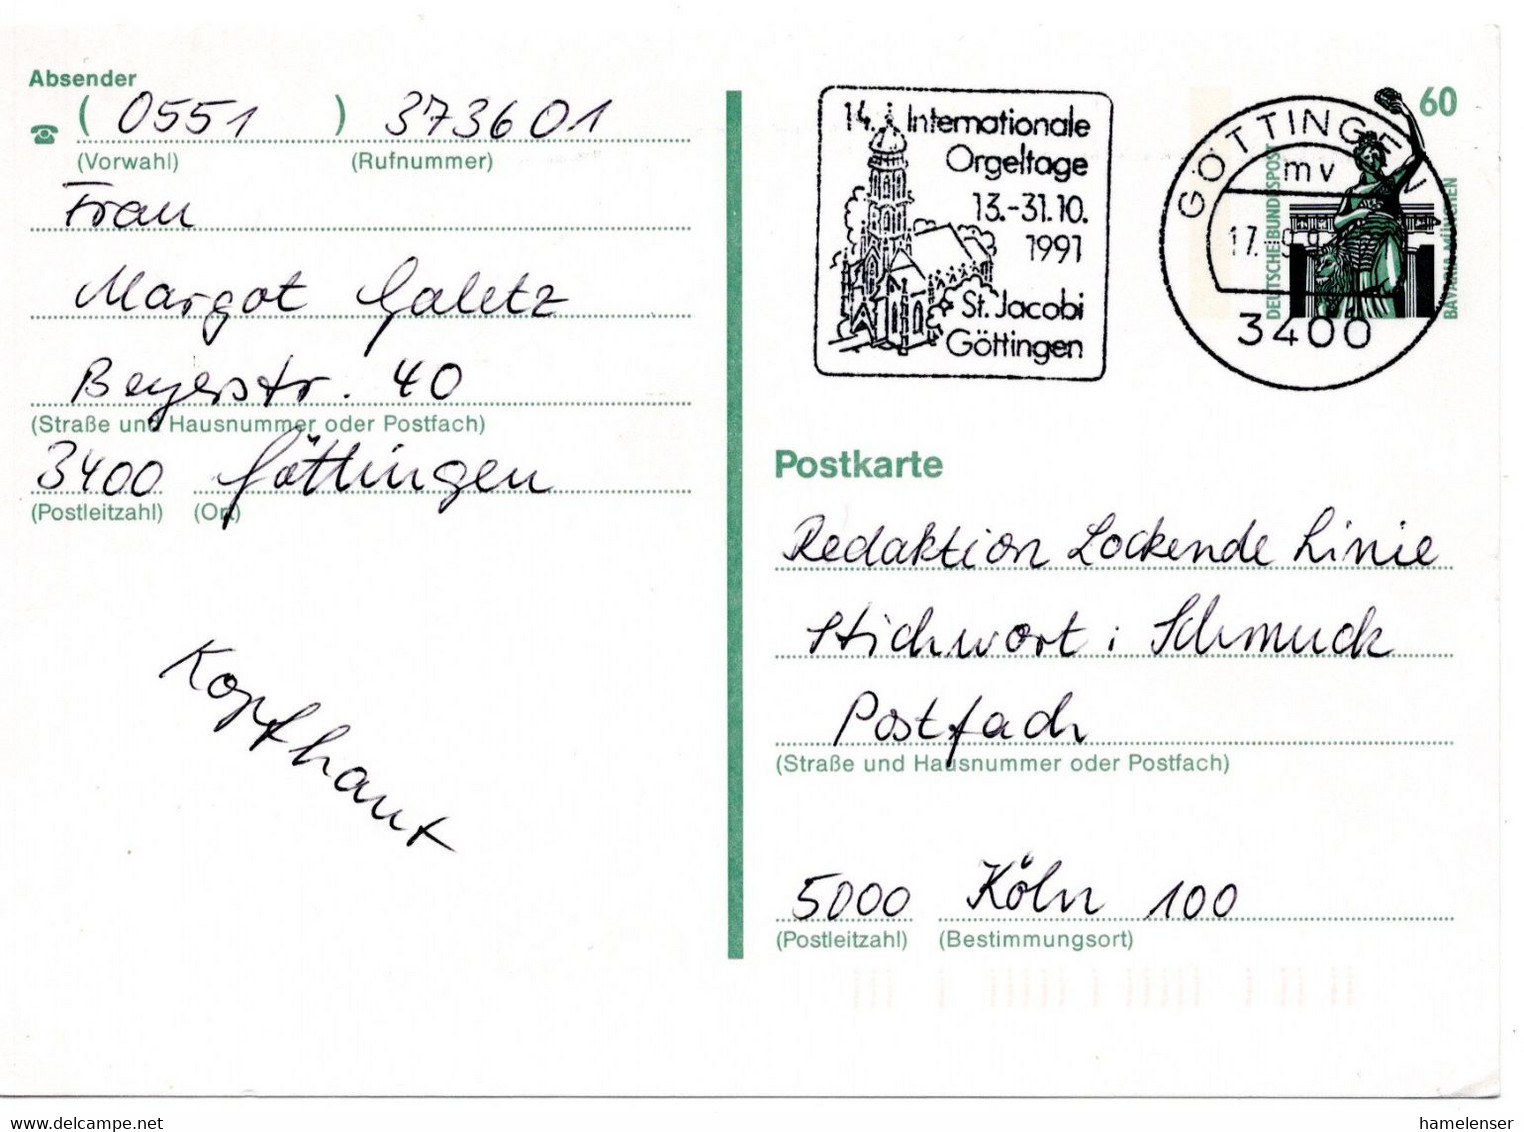 Absender
( 0551 ) 373601
(Vorwahl) (Rufnummer)
Frau
Margot Galetz
Beyerstr. 40
(Straße und Hausnummer oder Postfach)
3400 Göttingen
(Postleitzahl) (Ort)
Kopfhaut
14. Internationale
Orgeltage
13.-31.10.
1991
St. Jacobi
Göttingen
GÖTTINGEN
mv
17.
3400
60
DEUTSCHE BUNDESPOST
BAVARIA MÜNCHEN
Postkarte
Redaktion Lockende Linie
Stichwort: Schmuck
Postfach
(Straße und Hausnummer oder Postfach)
5000 Köln 100
(Postleitzahl) (Bestimmungsort)
hamelenser